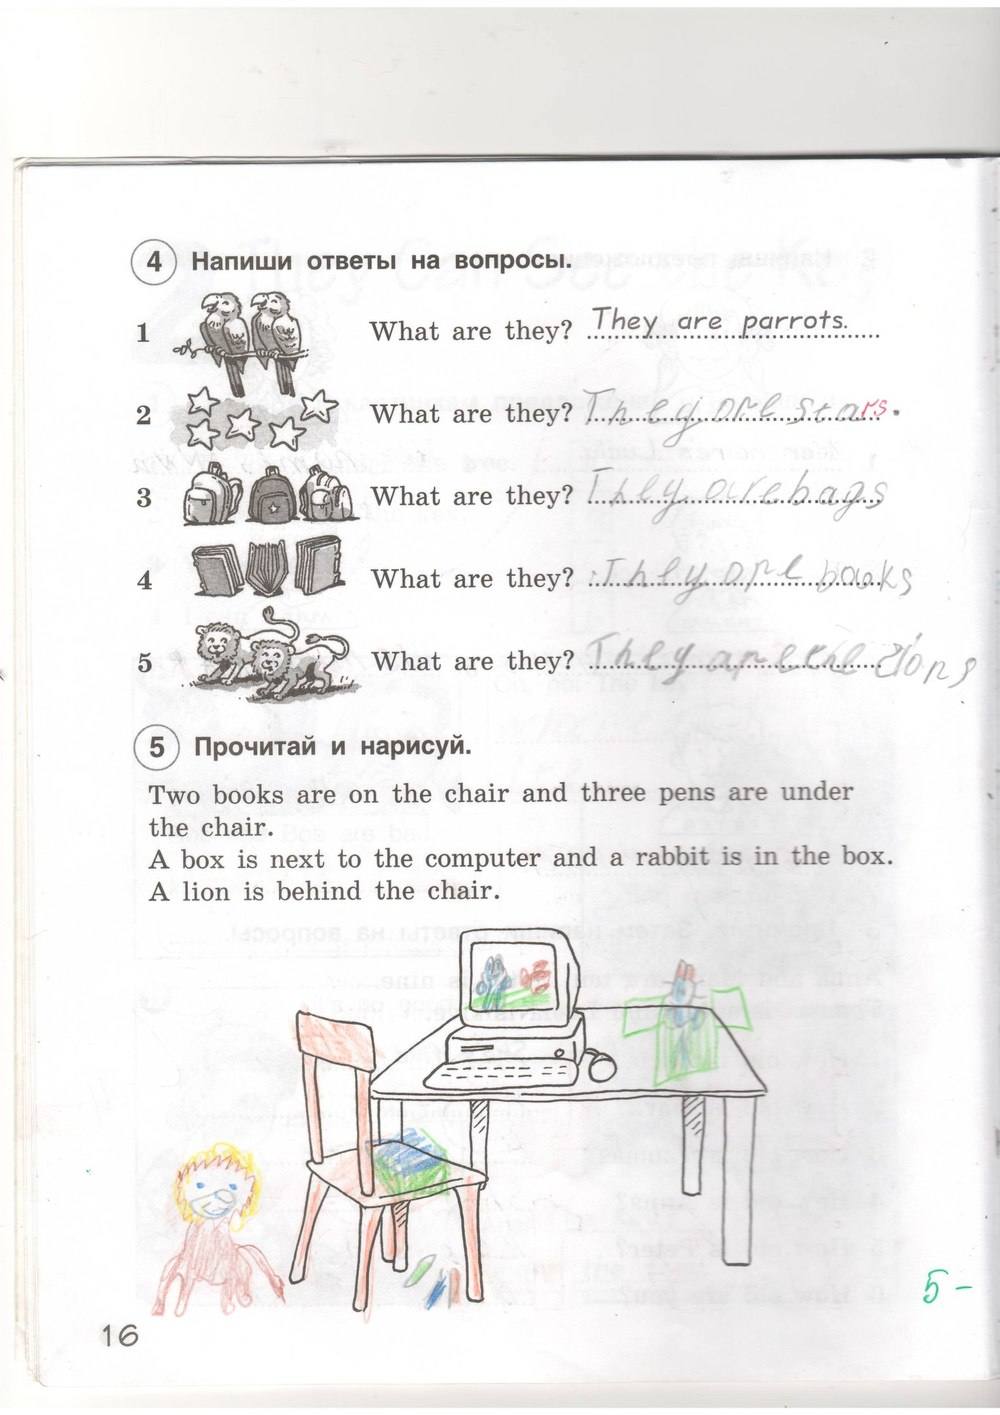 4 Напиши ответы на вопросы.
1 What are they? They are parrots.
2 What are they? They are stars.
3 What are they? They are bags
4 What are they? They are books
5 What are they? They are lions
5 Прочитай и нарисуй.
Two books are on the chair and three pens are under
the chair.
A box is next to the computer and a rabbit is in the box.
A lion is behind the chair.
5 –
16